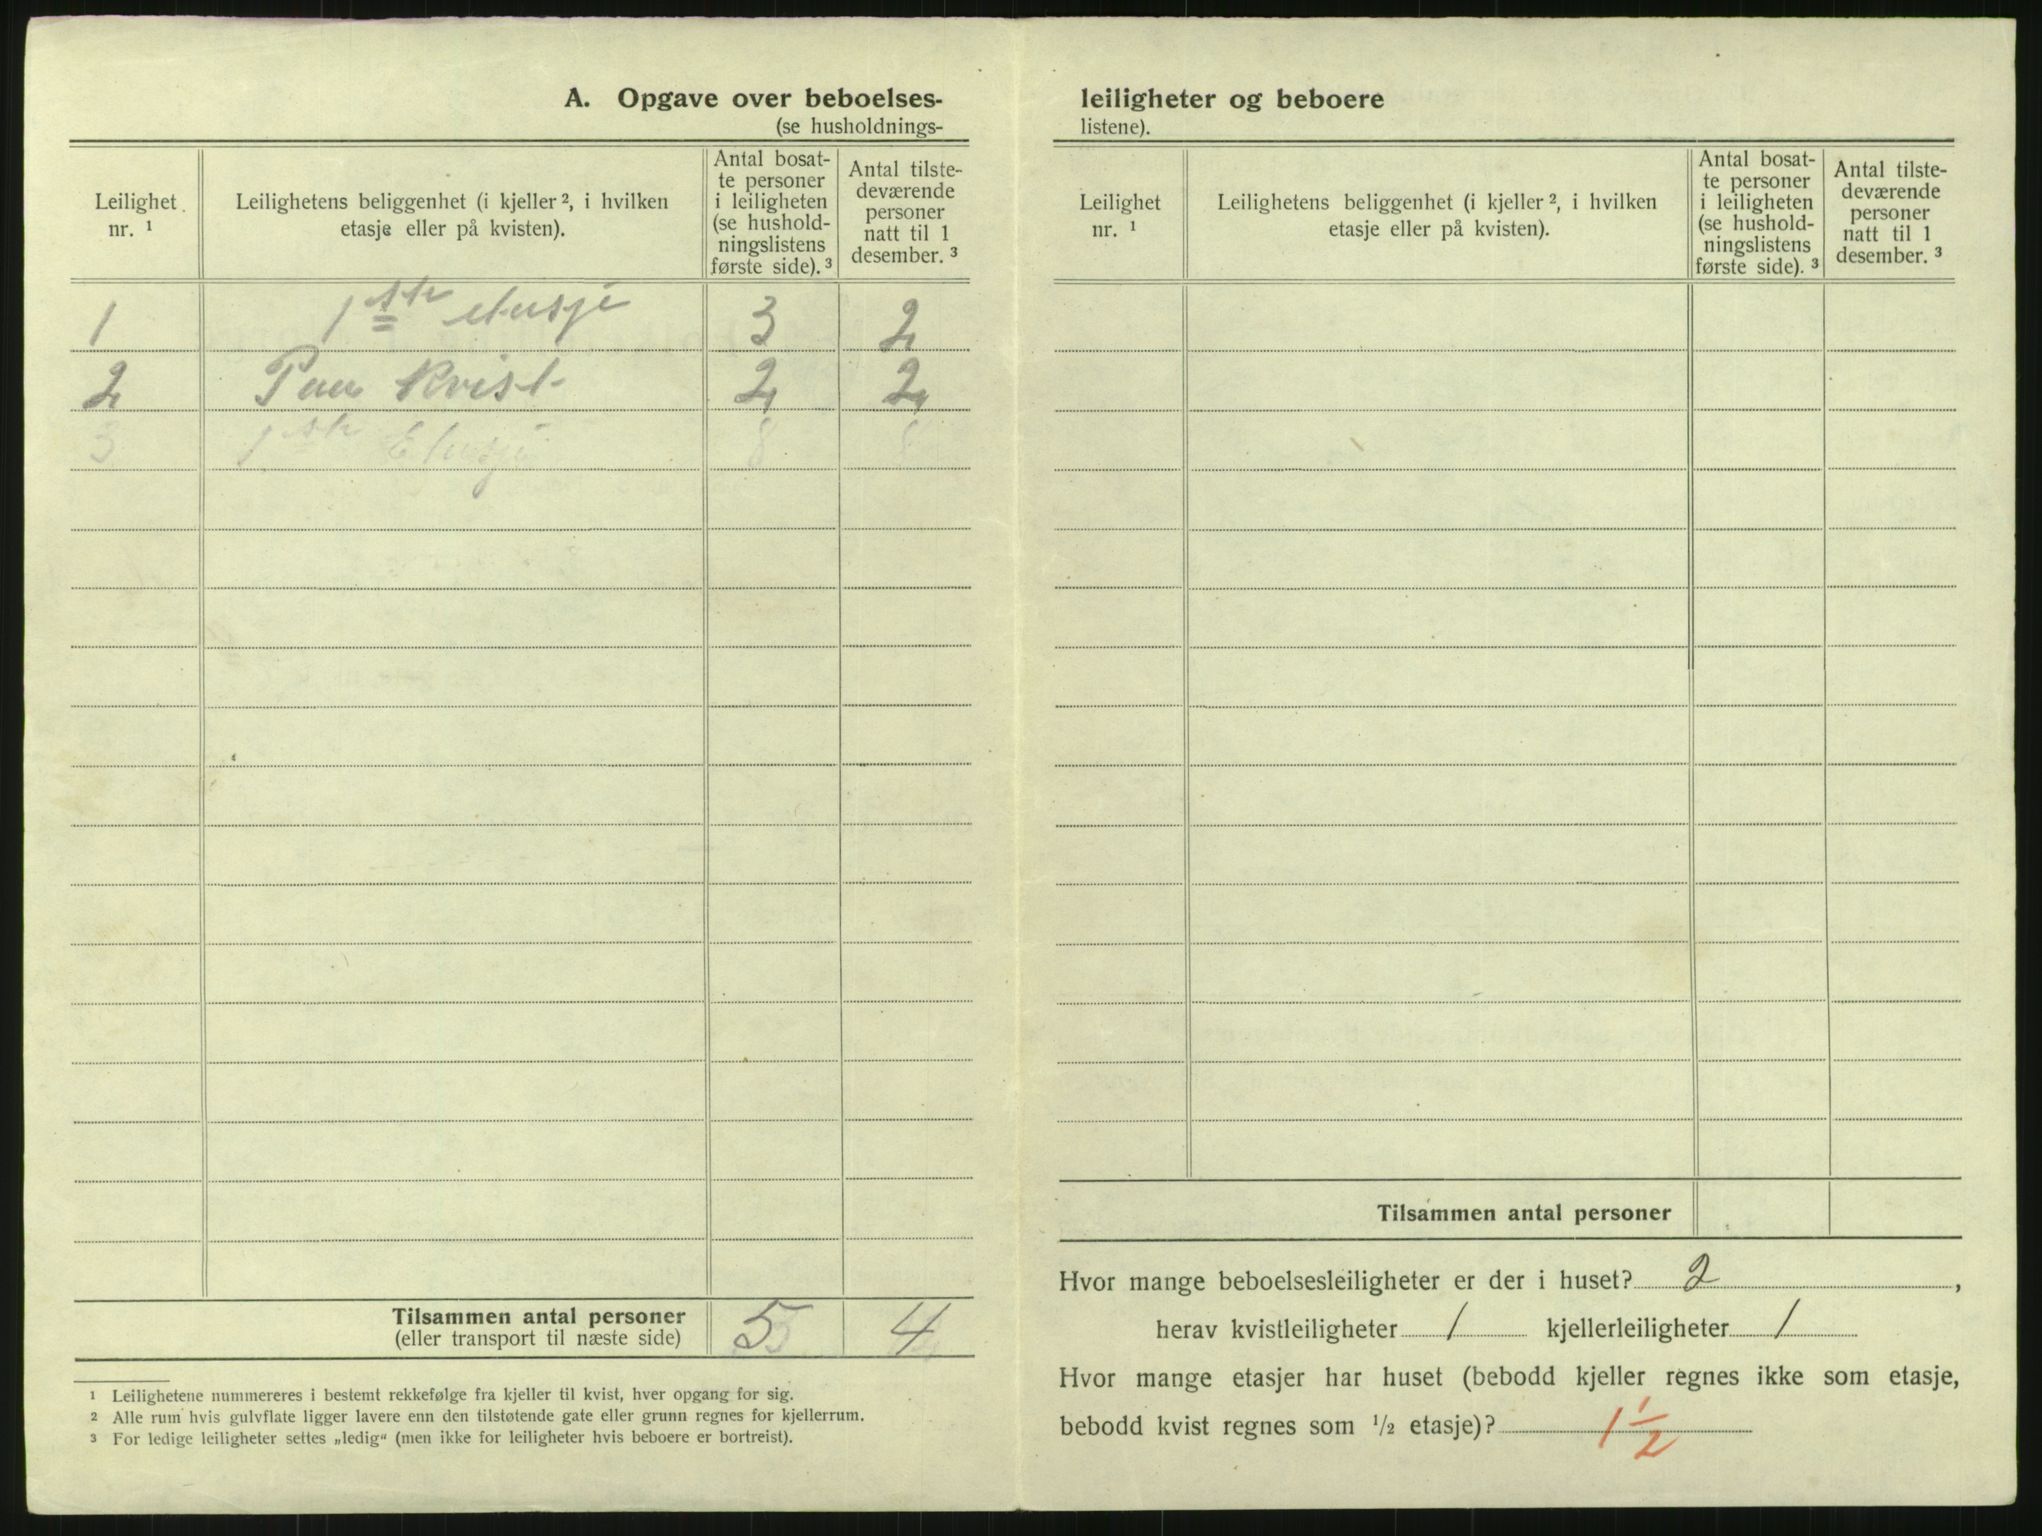 A. Opgave over beboelses-
(se husholdnings-
Leilighet nr. 1
Leilighetens beliggenhet (i kjeller 2, i hvilken
etasje eller på kvisten).
Antal bosat-
te personer
i leiligheten
(se hushold-
ningslistens
første side). 3
Antal tilste-
deværende
personer
natt til 1
desember. 3
1 1ste etasje 3 2
2 Paa Kvist 2 2
3 1ste Etasje 8
Tilsammen antal personer 5 4
(eller transport til næste side)
1 Leilighetene nummereres i bestemt rekkefølge fra kjeller til kvist, hver opgang for sig.
2 Alle rum hvis gulvflate ligger lavere enn den tilstøtende gate eller grunn regnes for kjellerrum.
3 For ledige leiligheter settes „ledig“ (men ikke for leiligheter hvis beboere er bortreist).
leiligheter og beboere
listene).
Leilighet nr. 1
Leilighetens beliggenhet (i kjeller 2, i hvilken
etasje eller på kvisten).
Antal bosat-
te personer
i leiligheten
(se hushold-
ningslistens
første side). 3
Antal tilste-
deværende
personer
natt til 1
desember. 3
Tilsammen antal personer
Hvor mange beboelsesleiligheter er der i huset? 2,
herav kvistleiligheter 1 kjellerleiligheter 1
Hvor mange etasjer har huset (bebodd kjeller regnes ikke som etasje,
bebodd kvist regnes som 1/2 etasje)? 1 1/2